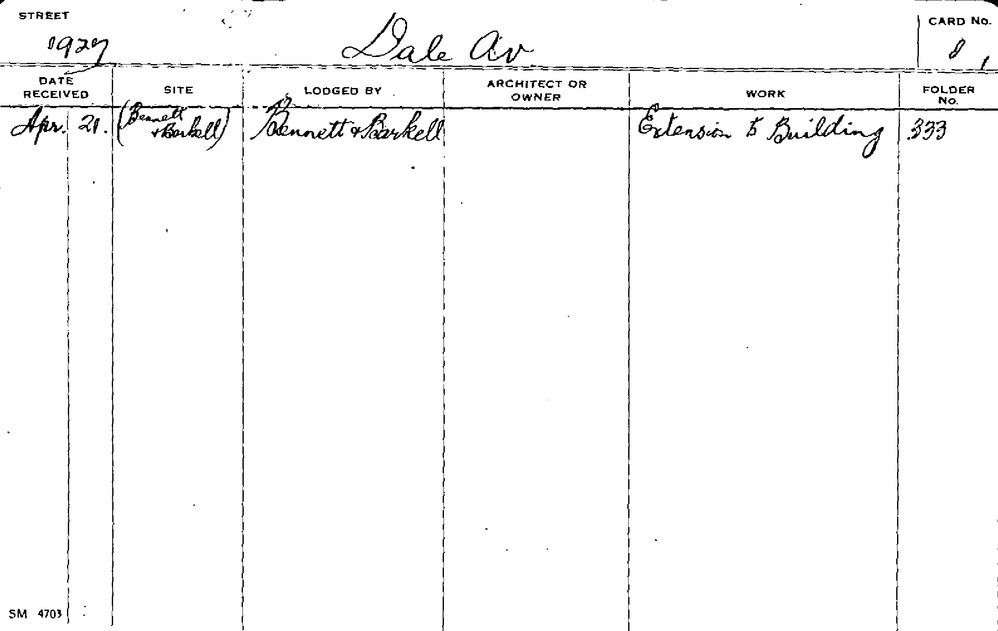 STREET
1927 Dale Av
CARD No.
1
DATE RECEIVED SITE LODGED BY ARCHITECT OR OWNER WORK FOLDER No.
Apr. 21. (Bennett & Barkell) Bennett & Barkell Extension to Building 333
SM 4703